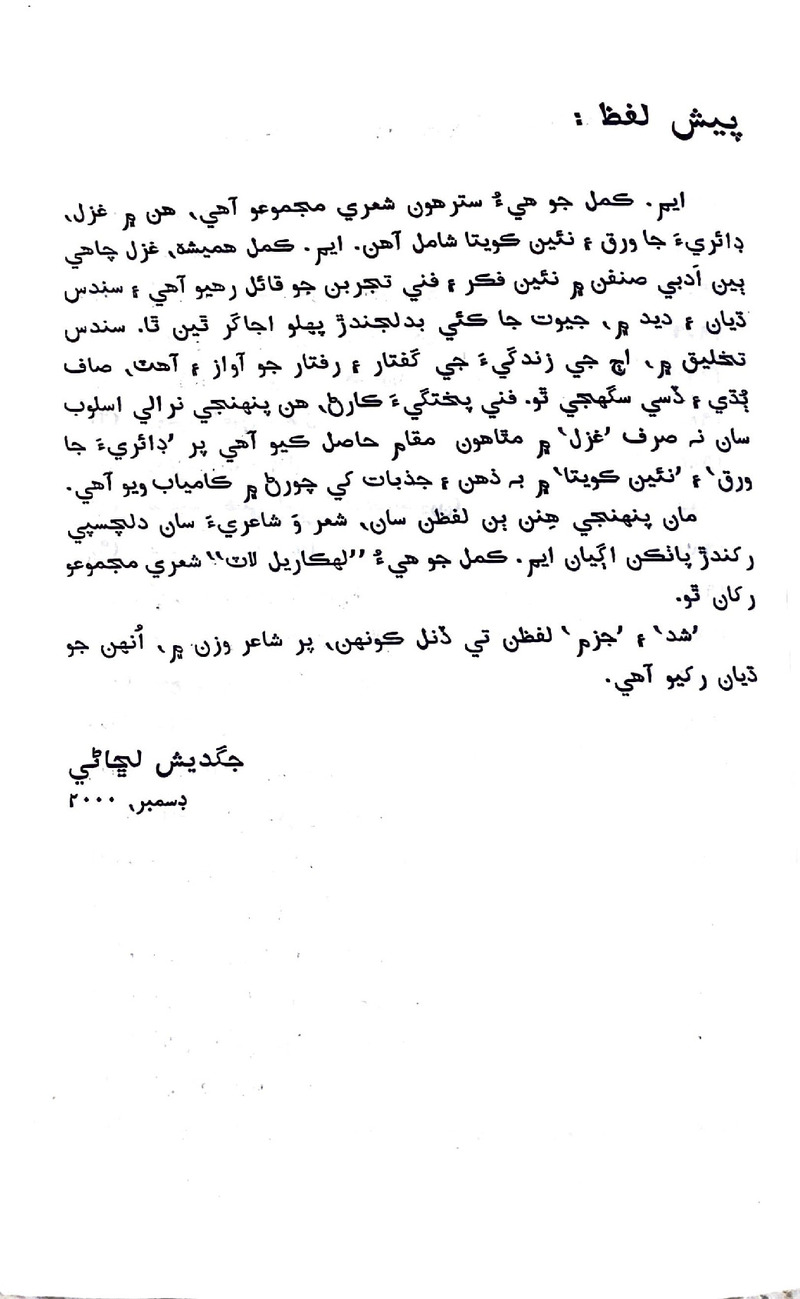 پيش لفظ :
ايم. ڪمل جو هيءُ سترهون شعري مجموعو آهي، هن ۾ غزل،
ڊائريءَ جا ورق ۽ نئين ڪويتا شامل آهن. ايم. ڪمل هميشه، غزل چاهي
ٻين اَدبي صنفن ۾ نئين فڪر ۽ فني تجربن جو قائل رهيو آهي ۽ سندس
ڌيان ۽ ديد ۾، جيوت جا ڪئي بدلجندڙ پهلو اجاگر ٿين ٿا. سندس
تخليق ۾، اڄ جي زندگيءَ جي گفتار ۽ رفتار جو آواز ۽ آهٽ، صاف
ٻُڌي ۽ ڏسي سگهجي ٿو. فني پختگيءَ ڪارڻ، هن پنهنجي نرالي اسلوب
سان نہ صرف ’غزل‘ ۾ مٿاهون مقام حاصل ڪيو آهي پر ’ڊائريءَ جا
ورق‘ ۽ ’نئين ڪويتا‘ ۾ بہ ذهن ۽ جذبات کي چورڻ ۾ ڪامياب ويو آهي.
مان پنهنجي هِنن ٻن لفظن سان، شعر وَ شاعريءَ سان دلچسپي
رکندڙ پاٺڪن اڳيان ايم. ڪمل جو هيءُ ”لهڪاريل لاٽ“ شعري مجموعو
رکان ٿو.
’شد‘ ۽ ’جزم‘ لفظن تي ڏنل ڪونهن، پر شاعر وزن ۾، اُنهن جو
ڌيان رکيو آهي.
جگديش لڇاڻي
ڊسمبر، ٢٠٠٠